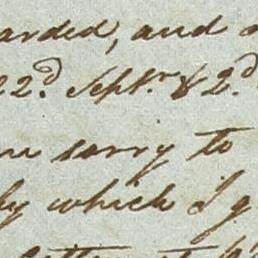 arded, and
22d Septr & 2d
sorry to
by which I g